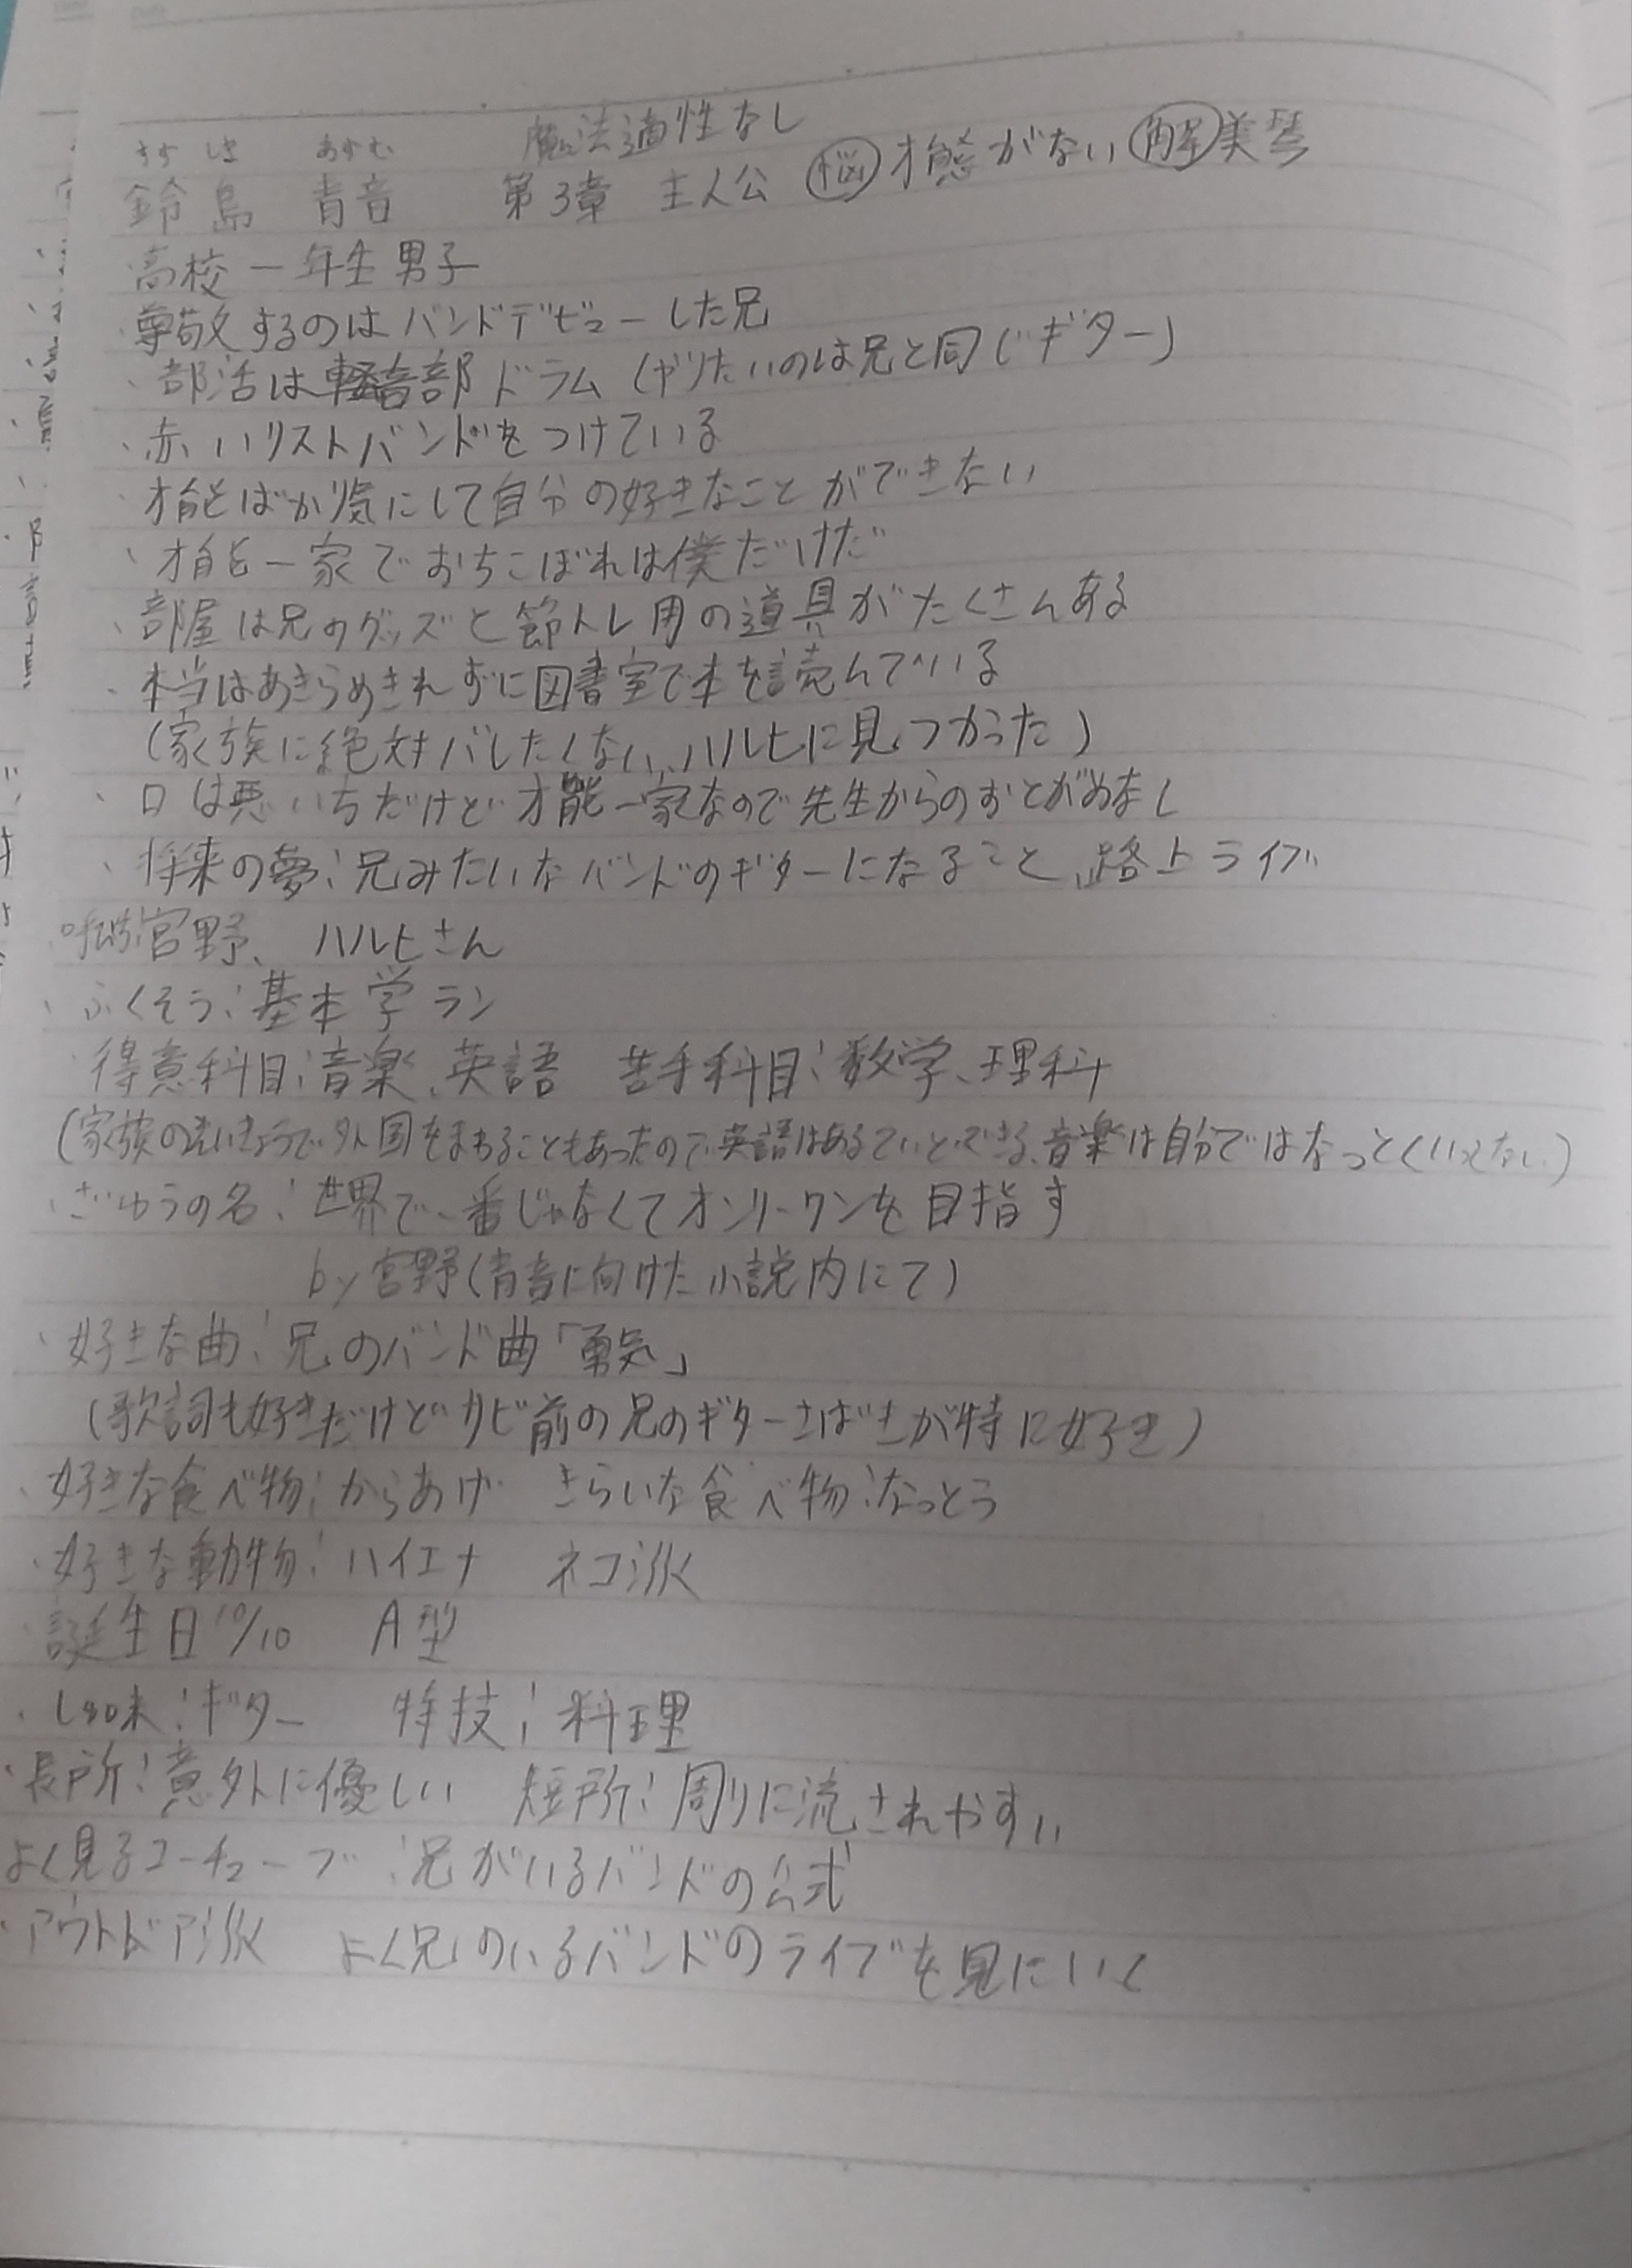 魔法適性なし
すず しま あすむ
鈴島 青音 第3章 主人公 悩 才態がない 解 美琴
高校一年生男子
尊敬するのはバンドデビューした兄
・部活は軽音部ドラム(やりたいのは兄と同じギター)
・赤いリストバンドをつけている
・才能ばかり気にして自分の好きなことができない
・才能一家でおちこぼれは僕だけだ
・部屋は兄のグッズと節トレ用の道具がたくさんある
・本当はあきらめきれずに図書室で本を読んでいる
(家族に絶対バレたくない、ハルヒに見つかった)
・口は悪いちだけど才能一家なので先生からのおとがめなし
・将来の夢:兄みたいなバンドのギターになること、路上ライブ
宮野、ハルヒさん
・ふくそう:基本学ラン
・得意科目:音楽、英語 苦手科目:数学、理科
(家族のえいきょうで外国をまわることもあったので英語はあるていどできる、音楽は自分ではなっとくいってない)
・ざゆうの名:世界で一番じゃなくてオンリーワンを目指す
by宮野(青音に向けた小説内にて)
・好きな曲:兄のバンド曲「勇気」
(歌詞も好きだけどサビ前の兄のギターさばきが特に好き)
・好きな食べ物:からあげ きらいな食べ物:なっとう
・好きな動物:ハイエナ ネコ派
・誕生日10/10 A型
・しゅ味:ギター 特技:料理
・長所:意外に優しい 短所:周りに流されやすい
よく見るユーチューブ:兄がいるバンドの公式
・アウトドア派 よく兄のいるバンドのライブを見にいく